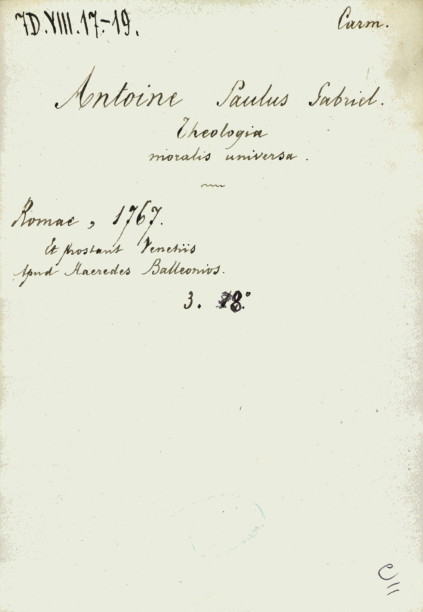 7D.VIII.17-19. Carm.
Antoine Paulus Gabriel.
Theologia
moralis universa.
Romae, 1767.
Et prostant Venetiis
Apud Haeredes Balleonios.
3. 8°